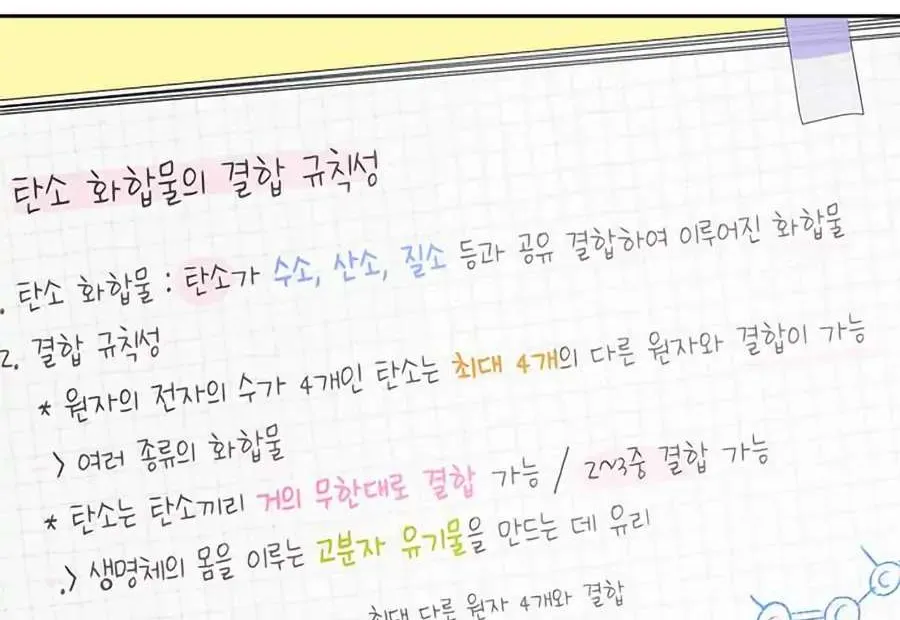 탄소 화합물의 결합 규칙성
. 탄소 화합물 : 탄소가 수소, 산소, 질소 등과 공유 결합하여 이루어진 화합물
2. 결합 규칙성
* 원자의 전자의 수가 4개인 탄소는 최대 4개의 다른 원자와 결합이 가능
> 여러 종류의 화합물
* 탄소는 탄소끼리 거의 무한대로 결합 가능 / 2~3중 결합 가능
.> 생명체의 몸을 이루는 고분자 유기물을 만드는 데 유리
최대 다른 원자 4개와 결합
C
C
C